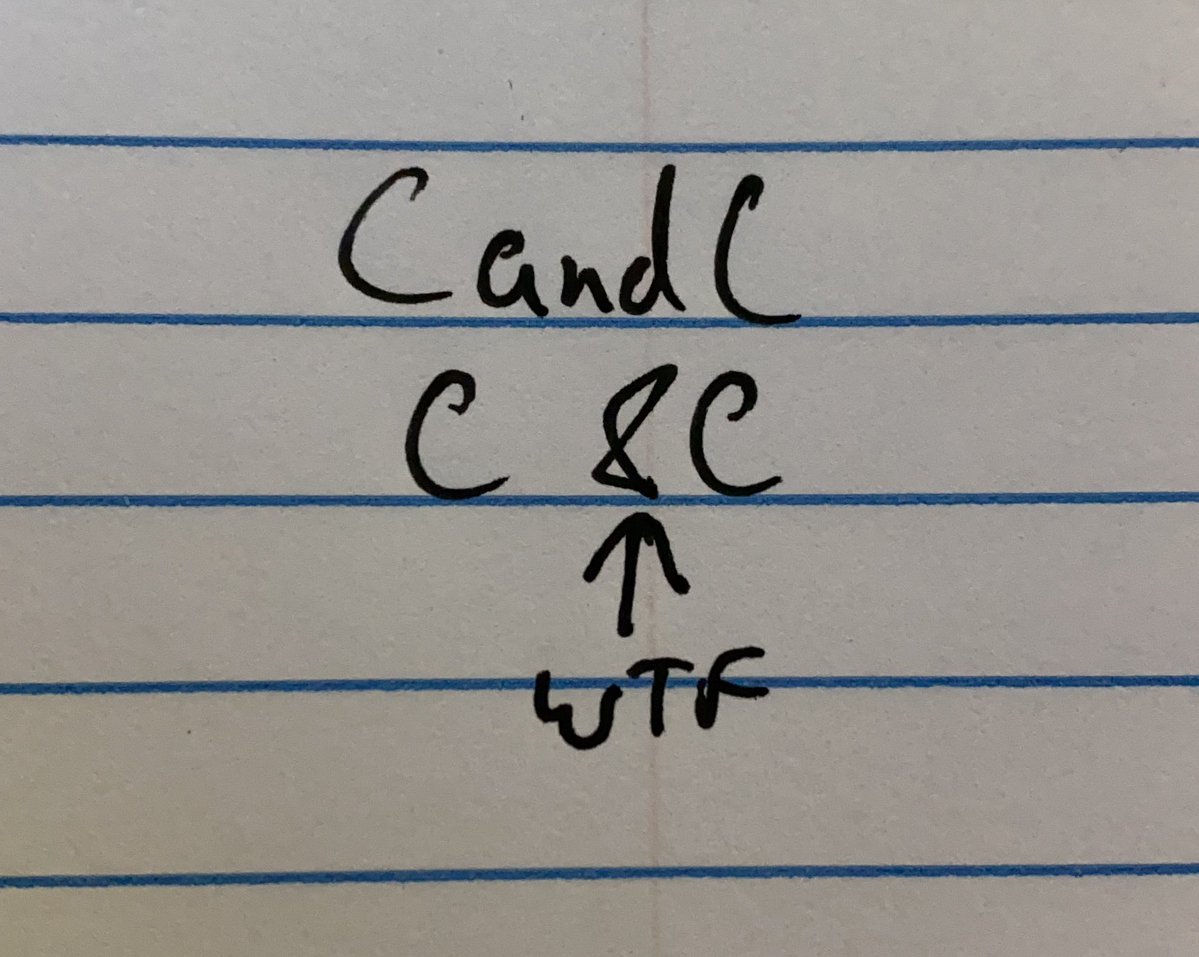 C and C
C & C
↑
WTF